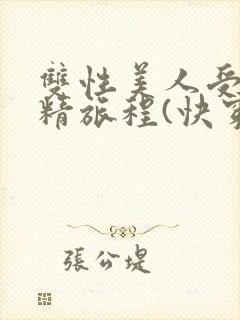 雙性美人受
精旅程(快穿
張公堤